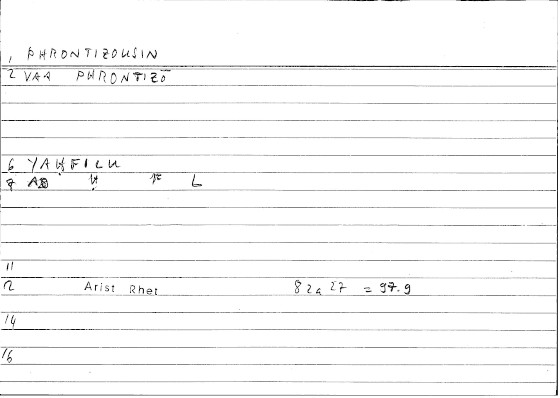 1 PHRONTIZOUSIN
2 VAA PHRONTIZŌ
6 YAḤFILU
7 AB Ḥ F L
11
12 Arist Rhet 82a 27 = 97.9
14
16